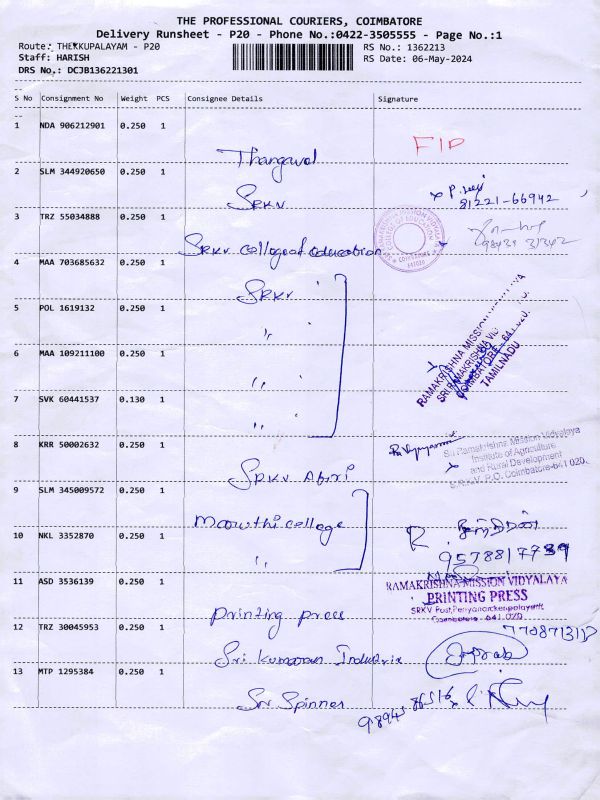 THE PROFESSIONAL COURIERS, COIMBATORE
Delivery Runsheet - P20 - Phone No.:0422-3505555 - Page No.:1
Route: THEKKUPALAYAM - P20
RS No.: 1362213
Staff: HARISH
RS Date: 06-May-2024
DRS No.: DCJB136221301
S No Consignment No Weight PCS Consignee Details Signature
1 NDA 906212901 0.250 1
Thangaval FID
2 SLM 344920650 0.250 1
SRKV 81221-66942
3 TRZ 55034888 0.250 1
SRKV college of education
4 MAA 703685632 0.250 1
SRKV
5 POL 1619132 0.250 1
"
RAMAKRISHNA MISSION
SRI RAMAKRISHNA
COIMBATORE - 641 020.
TAMILNADU
6 MAA 109211100 0.250 1
"
7 SVK 60441537 0.130 1
"
8 KRR 50002632 0.250 1
Sri Ramakrishna Mission Vidyalaya
Institute of Agriculture
and Rural Development
S.R.K.V. P.O. Coimbatore-641 020.
SRKV
9 SLM 345009572 0.250 1
Maruthi college
10 NKL 3352870 0.250 1
"
9578817739
11 ASD 3536139 0.250 1
RAMAKRISHNA MISSION VIDYALAYA
PRINTING PRESS
SRKV Post, Periyanaickenpalayam
Coimbatore - 641 020
Printing press
12 TRZ 30045953 0.250 1
7708713117
Sri Kumaran
13 MTP 1295384 0.250 1
Sri Spinner